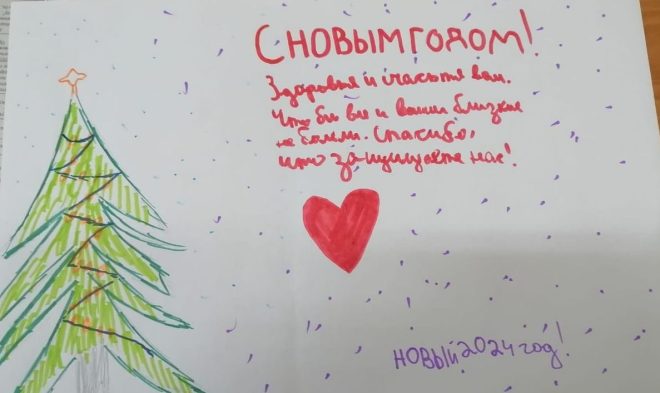 С НОВЫМ ГОДОМ!
Здоровья и счастья вам.
Что бы вы и ваши близкие
не болели. Спасибо,
что защищаете нас!
НОВЫЙ 2024 год!